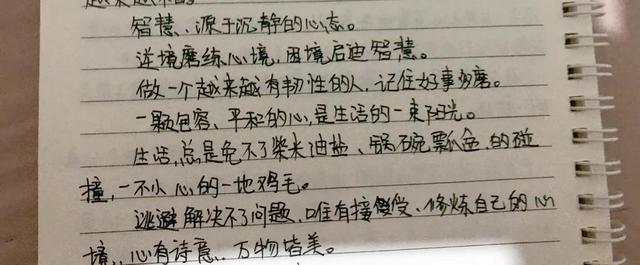 智慧、源于沉静的心态。
逆境磨练心境,困境启迪智慧。
做一个越来越有韧性的人,记住好事多磨。
一颗包容、平和的心,是生活的一束阳光。
生活,总是免不了柴米油盐、锅碗瓢盆的碰
撞,一不小心的一地鸡毛。
逃避解决不了问题、唯有接受、修炼自己的心
境,心有诗意、万物皆美。